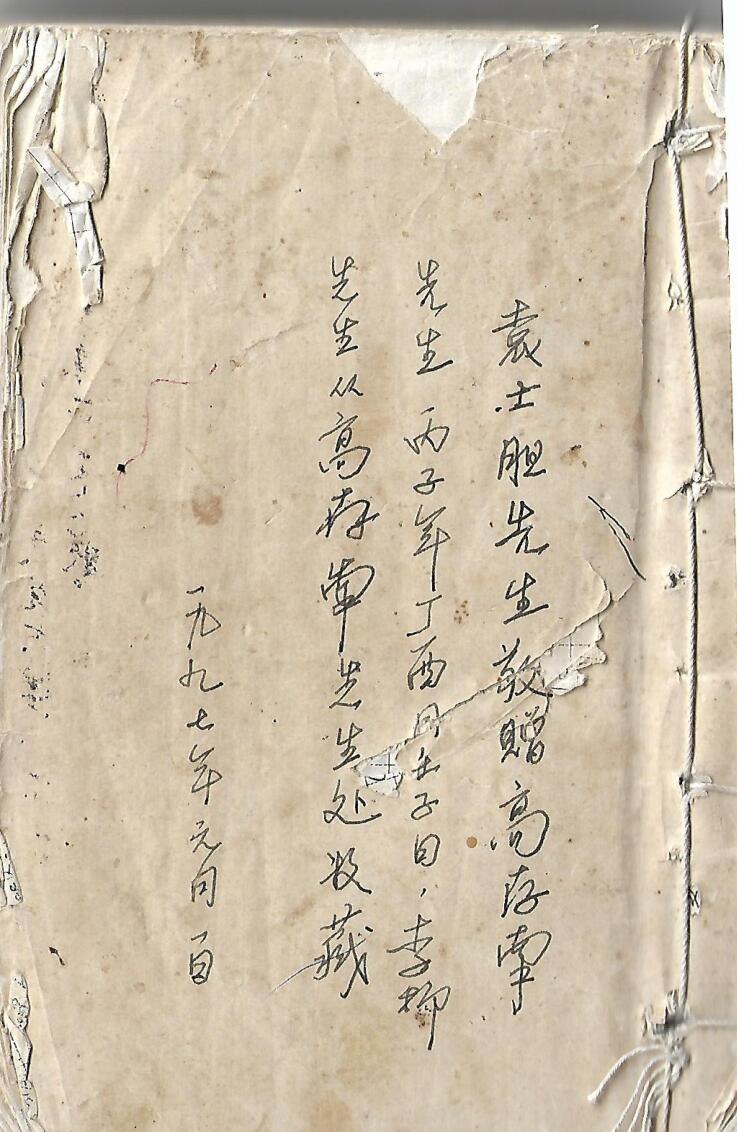 袁士胆先生敬赠高存南
先生 丙子年丁酉月壬子日,李柳
先生从高存南先生处收藏
一九九七年元月一日